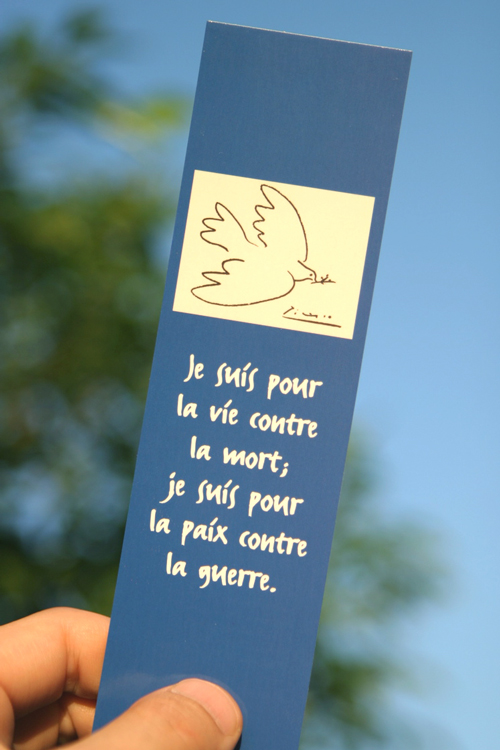 Picasso
Je suis pour
la vie contre
la mort;
je suis pour
la paix contre
la guerre.